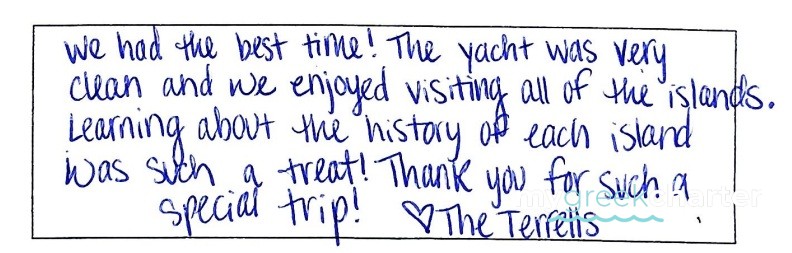 we had the best time! The yacht was very
clean and we enjoyed visiting all of the islands.
Learning about the history of each island
was such a treat! Thank you for such a
special trip! ♡ The Terrells
mygreekcharter